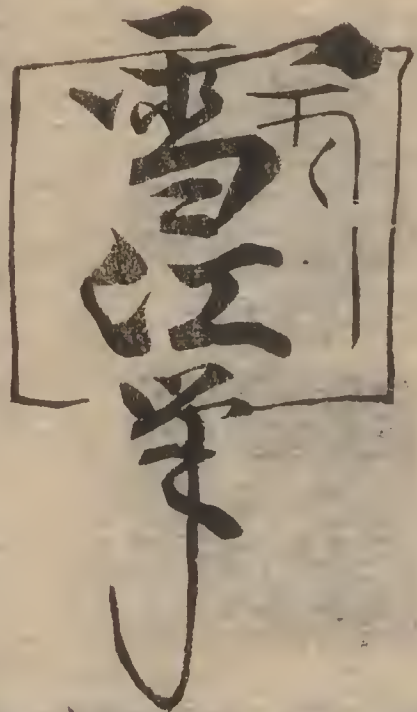 雪江筆